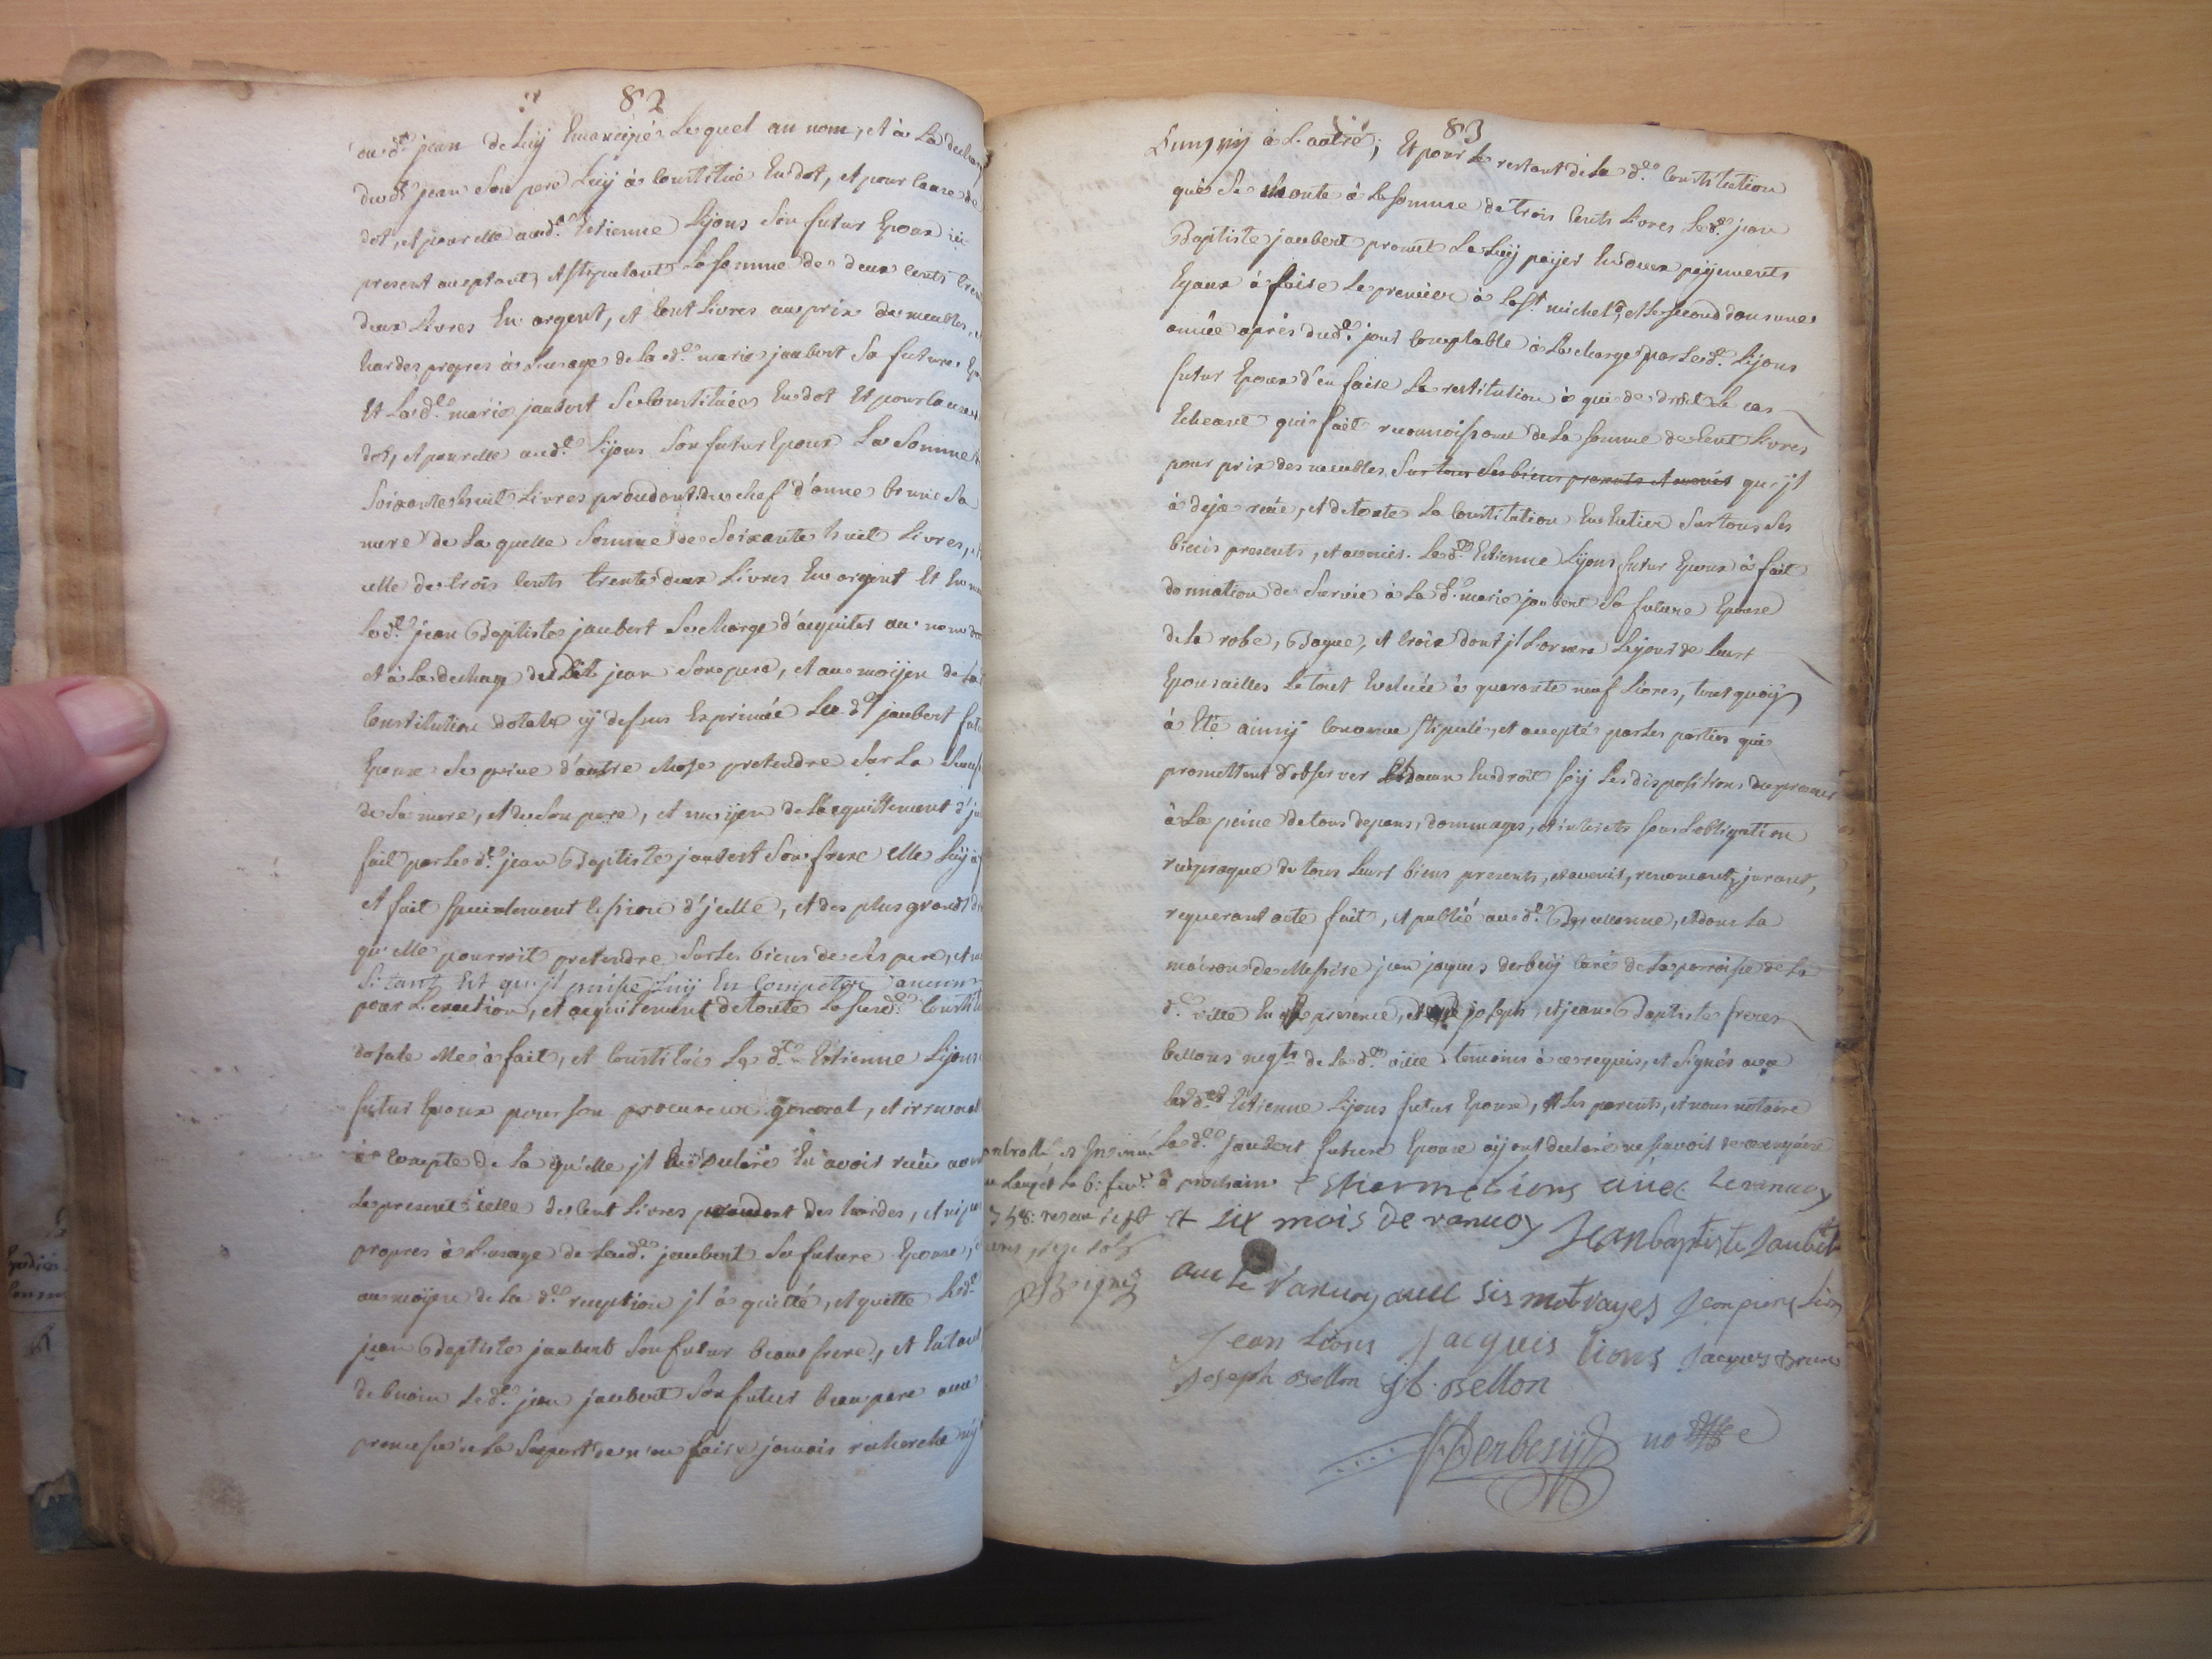 82
au dt. jean de Luy Emancipé Lequel au nom, et à La decharg
dudt. jean Son pere Luy à Constitué En dot, et pour Cause de
dot, et pour elle audt. Estienne Lyons Son futur Epoux icy
present aceptant, et stipulant La somme de deux Cents tren
deux Livres En argent, et Cent Livres au prix de meubles, et
hardes propres à Lusage de La de. marie jaubert Sa future Epo
Et La de. marie jaubert Se Constituée En dot Et pour Cause de
dot, et pour elle audt. Lyons Son futur Epoux La Somme de
Soixante huit Livres procedant du chef d'anne brunc Sa
mere de La quelle Somme de Soixante huit Livres, et
celle de trois Cents trente deux Livres En argent Et En
Ledt. jean Baptiste jaubert Se charge d'aquiter au nom
et à La decharge dudit jean Son pere, et au moijen de La
Constitution dotale cy dessus Exprimée La de. jaubert futu
Epouse Se prive d'autre chose pretendre Sur La Success
de Sa mere, et de Son pere, et moyen de Laquittement d'j
fait par Le dt. jean Baptiste jaubert Son frere elle Luy à
et fait specialement Cession d'jcelle, et des plus grands d
qu'elle pourroit pretendre Sur Les biens de Ses pere, et m
Si tant Est qu'jl puisse Luy En Competer aucun
pour L'exaction, et aquitement de toute La susde. Constit
dotale elle à fait, et Constitué Le dt. Estienne Lyons
futur Epoux pour son procureur general, et irrevocabl
à Compte de La qu'elle jl à declaré En avoir reçu avant
Le present celle de Cent Livres procedant des hardes, et nip
propres à Lusage de Lade. jaubert Sa future Epouse,
au moijen de La de. reception jl à quitté, et quitte Ledt.
jean Baptiste jaubert Son futur beau frere, et En tant
de besoin Ledt. jean jaubert Son futur beau pere avec
promesse de La Suporter n'en faire jamais recherche ny
83
L'un, ny à L'autre; Et pour Le restant de La de. Constitution
que Se monte à La somme de trois Cents Livres Ledt. jean
Baptiste jaubert promet La Luy payer En deux payements
Egaux à faire Le premier à La St. michel, et Le second dans une
année après dudt. jour Comptable à La charge par Ledt. Lyons
futur Epoux d'en faire La restitution à qui de droit Le cas
Echeant qui fait reconnoissance de La somme de Cent Livres
pour prix des meubles Sur tous Ses biens presents et avenir qu'jl
à deja reçue, et de toute La Constitution En Entier Sur tous Ses
biens presents, et avenir. Ledt. Estienne Lyons futur Epoux à fait
donnation de Survie à La de. marie jaubert Sa future Epouse
de La robe, Bague, et Croix dont jl L'ornera Le jour de Leurs
Epousailles Le tout Evaluée à quarante neuf Livres, tout quoy
à Eté ainsy Convenue stipulé, et accepté par Les parties qui
promettent d'observer Chacun En droit soy Les dispositions du present
à La peine de tous depens, dommages, et interets sous L'obligation
reciproque de tous Leurs biens presents, et avenir, renoncant, jurant,
requerant acte fait, et publié audt. Barcellonne, et dans La
maison de Messire jean jaques derbesy Curé de La parroisse de La
de. ville En presence, de joseph, et jean Baptiste freres
bellons negts. de La de. ville temoins à ce requis, et Signés avec
Ledt. Estienne Lyons futur Epoux, et Les parents, et nous notaire
La de. jaubert future Epouse ayant declaré ne sçavoir de ce enquise
à prochain Estienne Lions avec Le ranvoy
et six mois de ranvoy Jean baptiste Jaubert
avec Le ranvoy avec sis mot rayes Jean pierre Lions
Jean Lions Jacques Lions Jacques Brune
Joseph Bellon J. B. Bellon
Derbesy no re